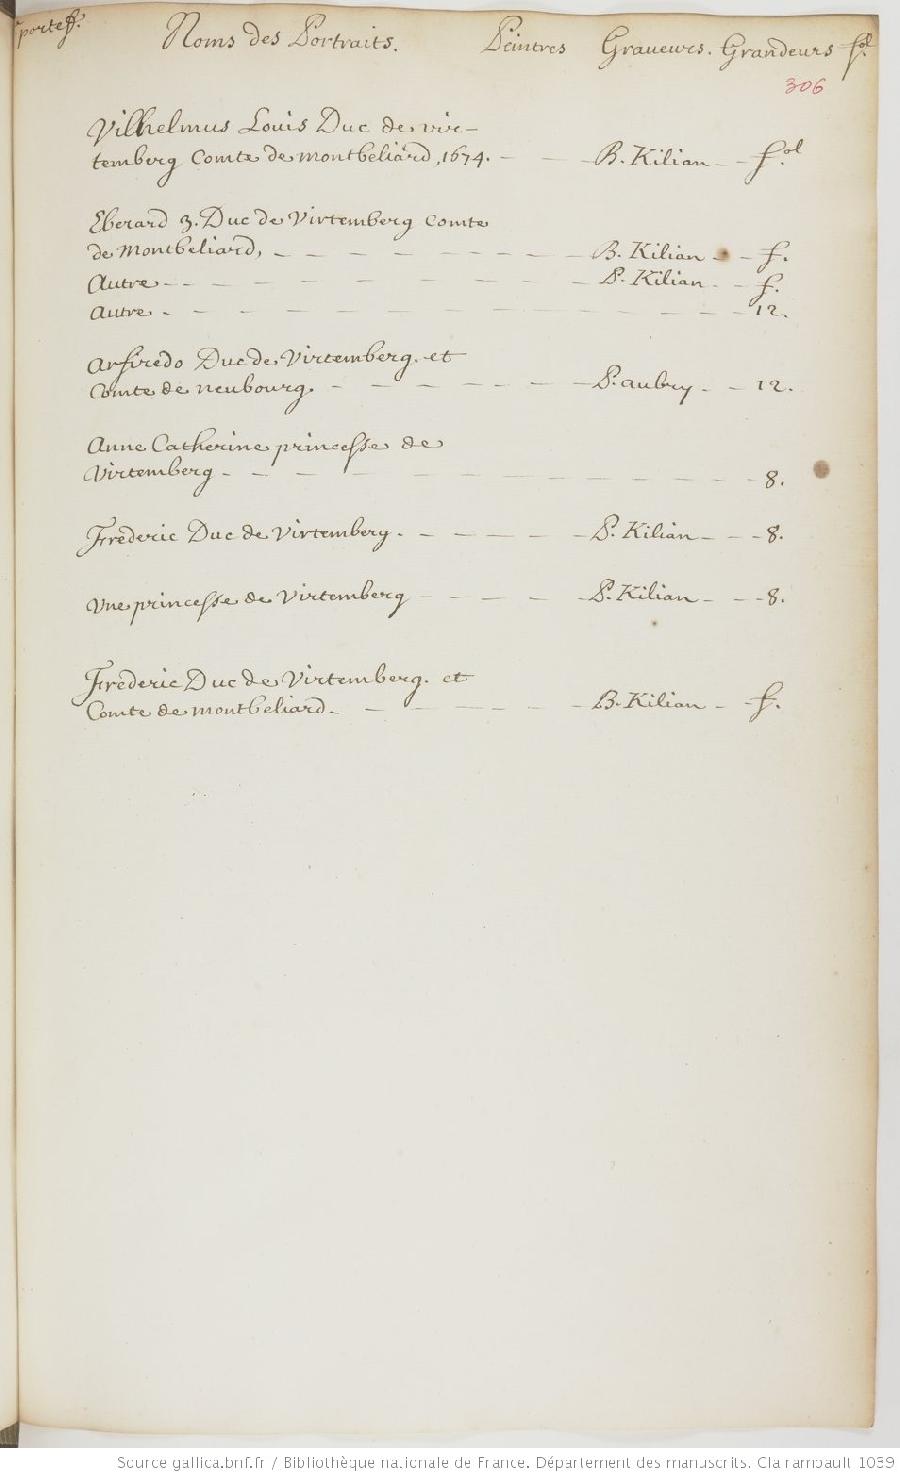 portef. Noms des Portraits. Peintres Graueurs. Grandeurs fol
306
Vilhelmus Louis Duc de vir-
temberg Comte de montbeliard, 1674. - - - B. Kilian - - fol
Eberard 3. Duc de Virtemberg Comte
de Montbeliard, - - - - - - - - B. Kilian - - f.
Autre - - - - - - - - - P. Kilian - - f.
Autre. - - - - - - - - - - - - - 12.
Arfiredo Duc de Virtemberg. et
Comte de neubourg. - - - - - - - P. aubry - - 12.
Anne Catherine princesse de
Virtemberg - - - - - - - - - - - - 8.
Frederic Duc de Virtemberg. - - - - - P. Kilian - - - 8.
Vne princesse de Virtemberg - - - - - P. Kilian - - - 8.
Frederic Duc de Virtemberg. et
Comte de montbeliard. - - - - - - B. Kilian - - f.
Source gallica.bnf.fr / Bibliothèque nationale de France. Département des manuscrits. Clairambault 1039